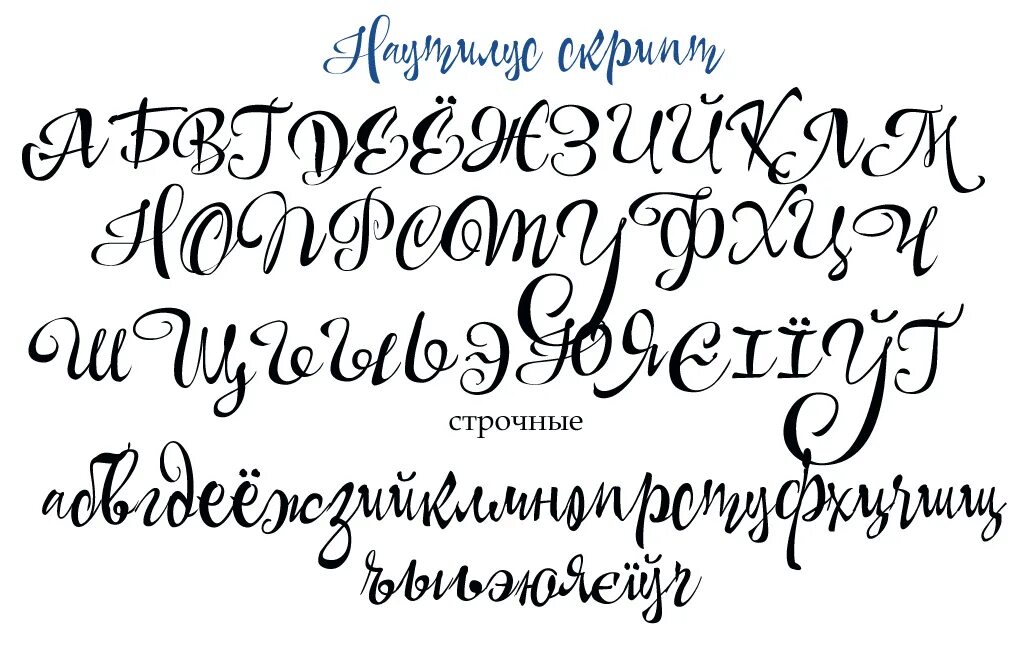 Наутилус скрипт
АБВГДЕЁЖЗИЙКЛМ
НОПРСТУФХЦЧ
ШЩЪЫЬЭЮЯЄІЇЎҐ
строчные
абвгдеёжзийклмнопрстуфхцчшщ
ъыьэюяєіїўґ